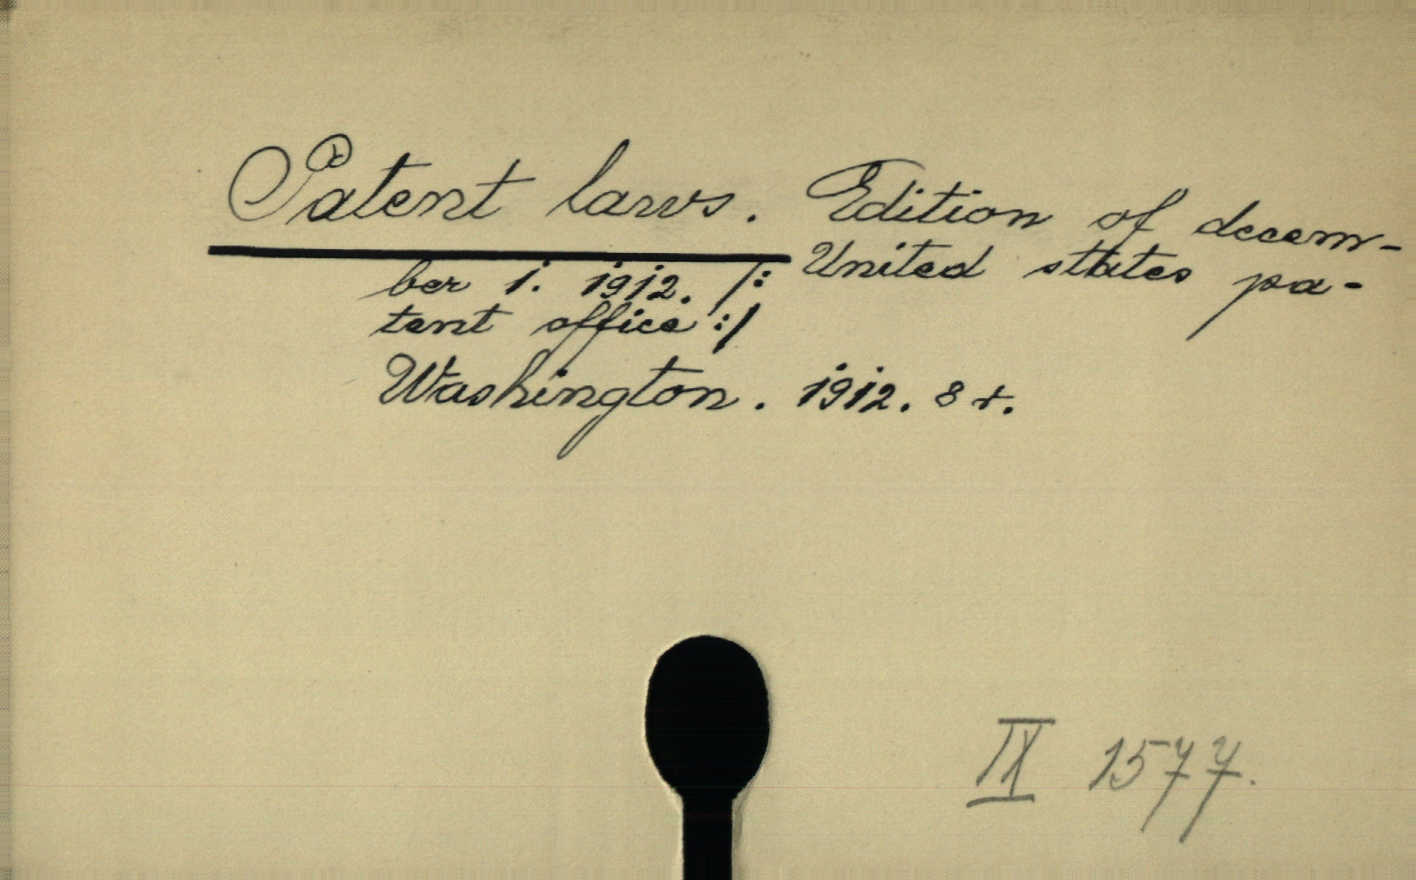 Patent laws. Edition of decem-
ber 1. 1912. /: United states pa-
tent office :/
Washington. 1912. 8 r.
IX 1577.